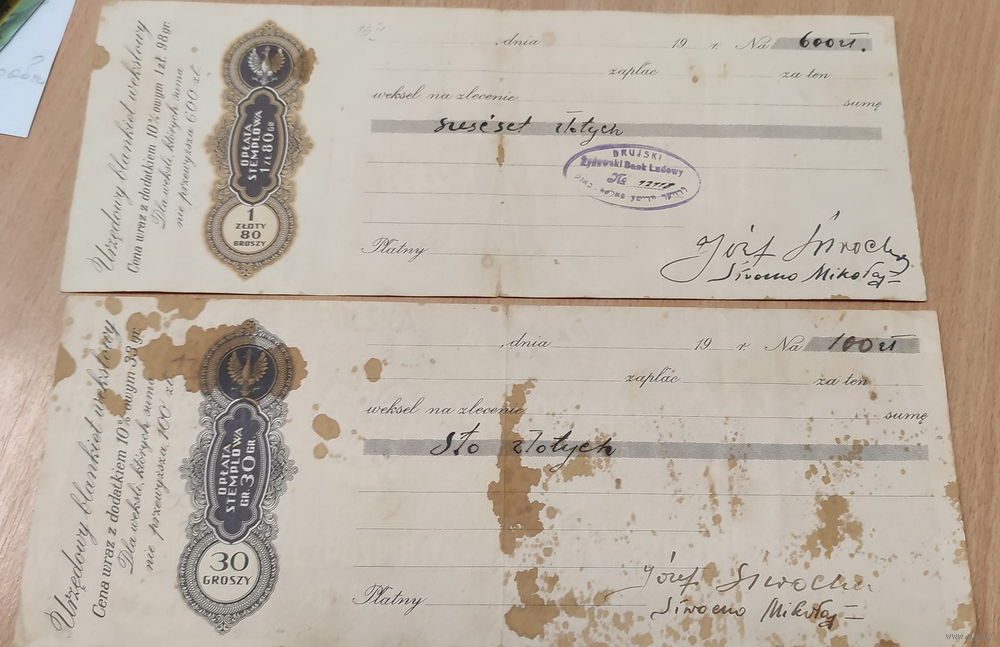 Urzędowy blankiet wekslowy
Cena wraz z dodatkiem 10%owym 1 zł. 98 gr.
Dla weksli, których suma
nie przewyższa 600 zł.
OPŁATA
STEMPLOWA
1 ZŁ 80 GR.
1
ZŁOTY
80
GROSZY
, dnia 19 r. Na 600 zł.
zapłac za ten
weksel na zlecenie sumę
sześćset złotych
DRUJSKI
Żydowski Bank Ludowy
№
Płatny
Józef
Mikołaj
Urzędowy blankiet wekslowy
Cena wraz z dodatkiem 10%owym 33 gr.
Dla weksli, których suma
nie przewyższa 100 zł.
OPŁATA
STEMPLOWA
GR. 30 GR.
30
GROSZY
, dnia 19 r. Na 100 zł
zapłac za ten
weksel na zlecenie sumę
sto złotych
Płatny
Józef
Mikołaj